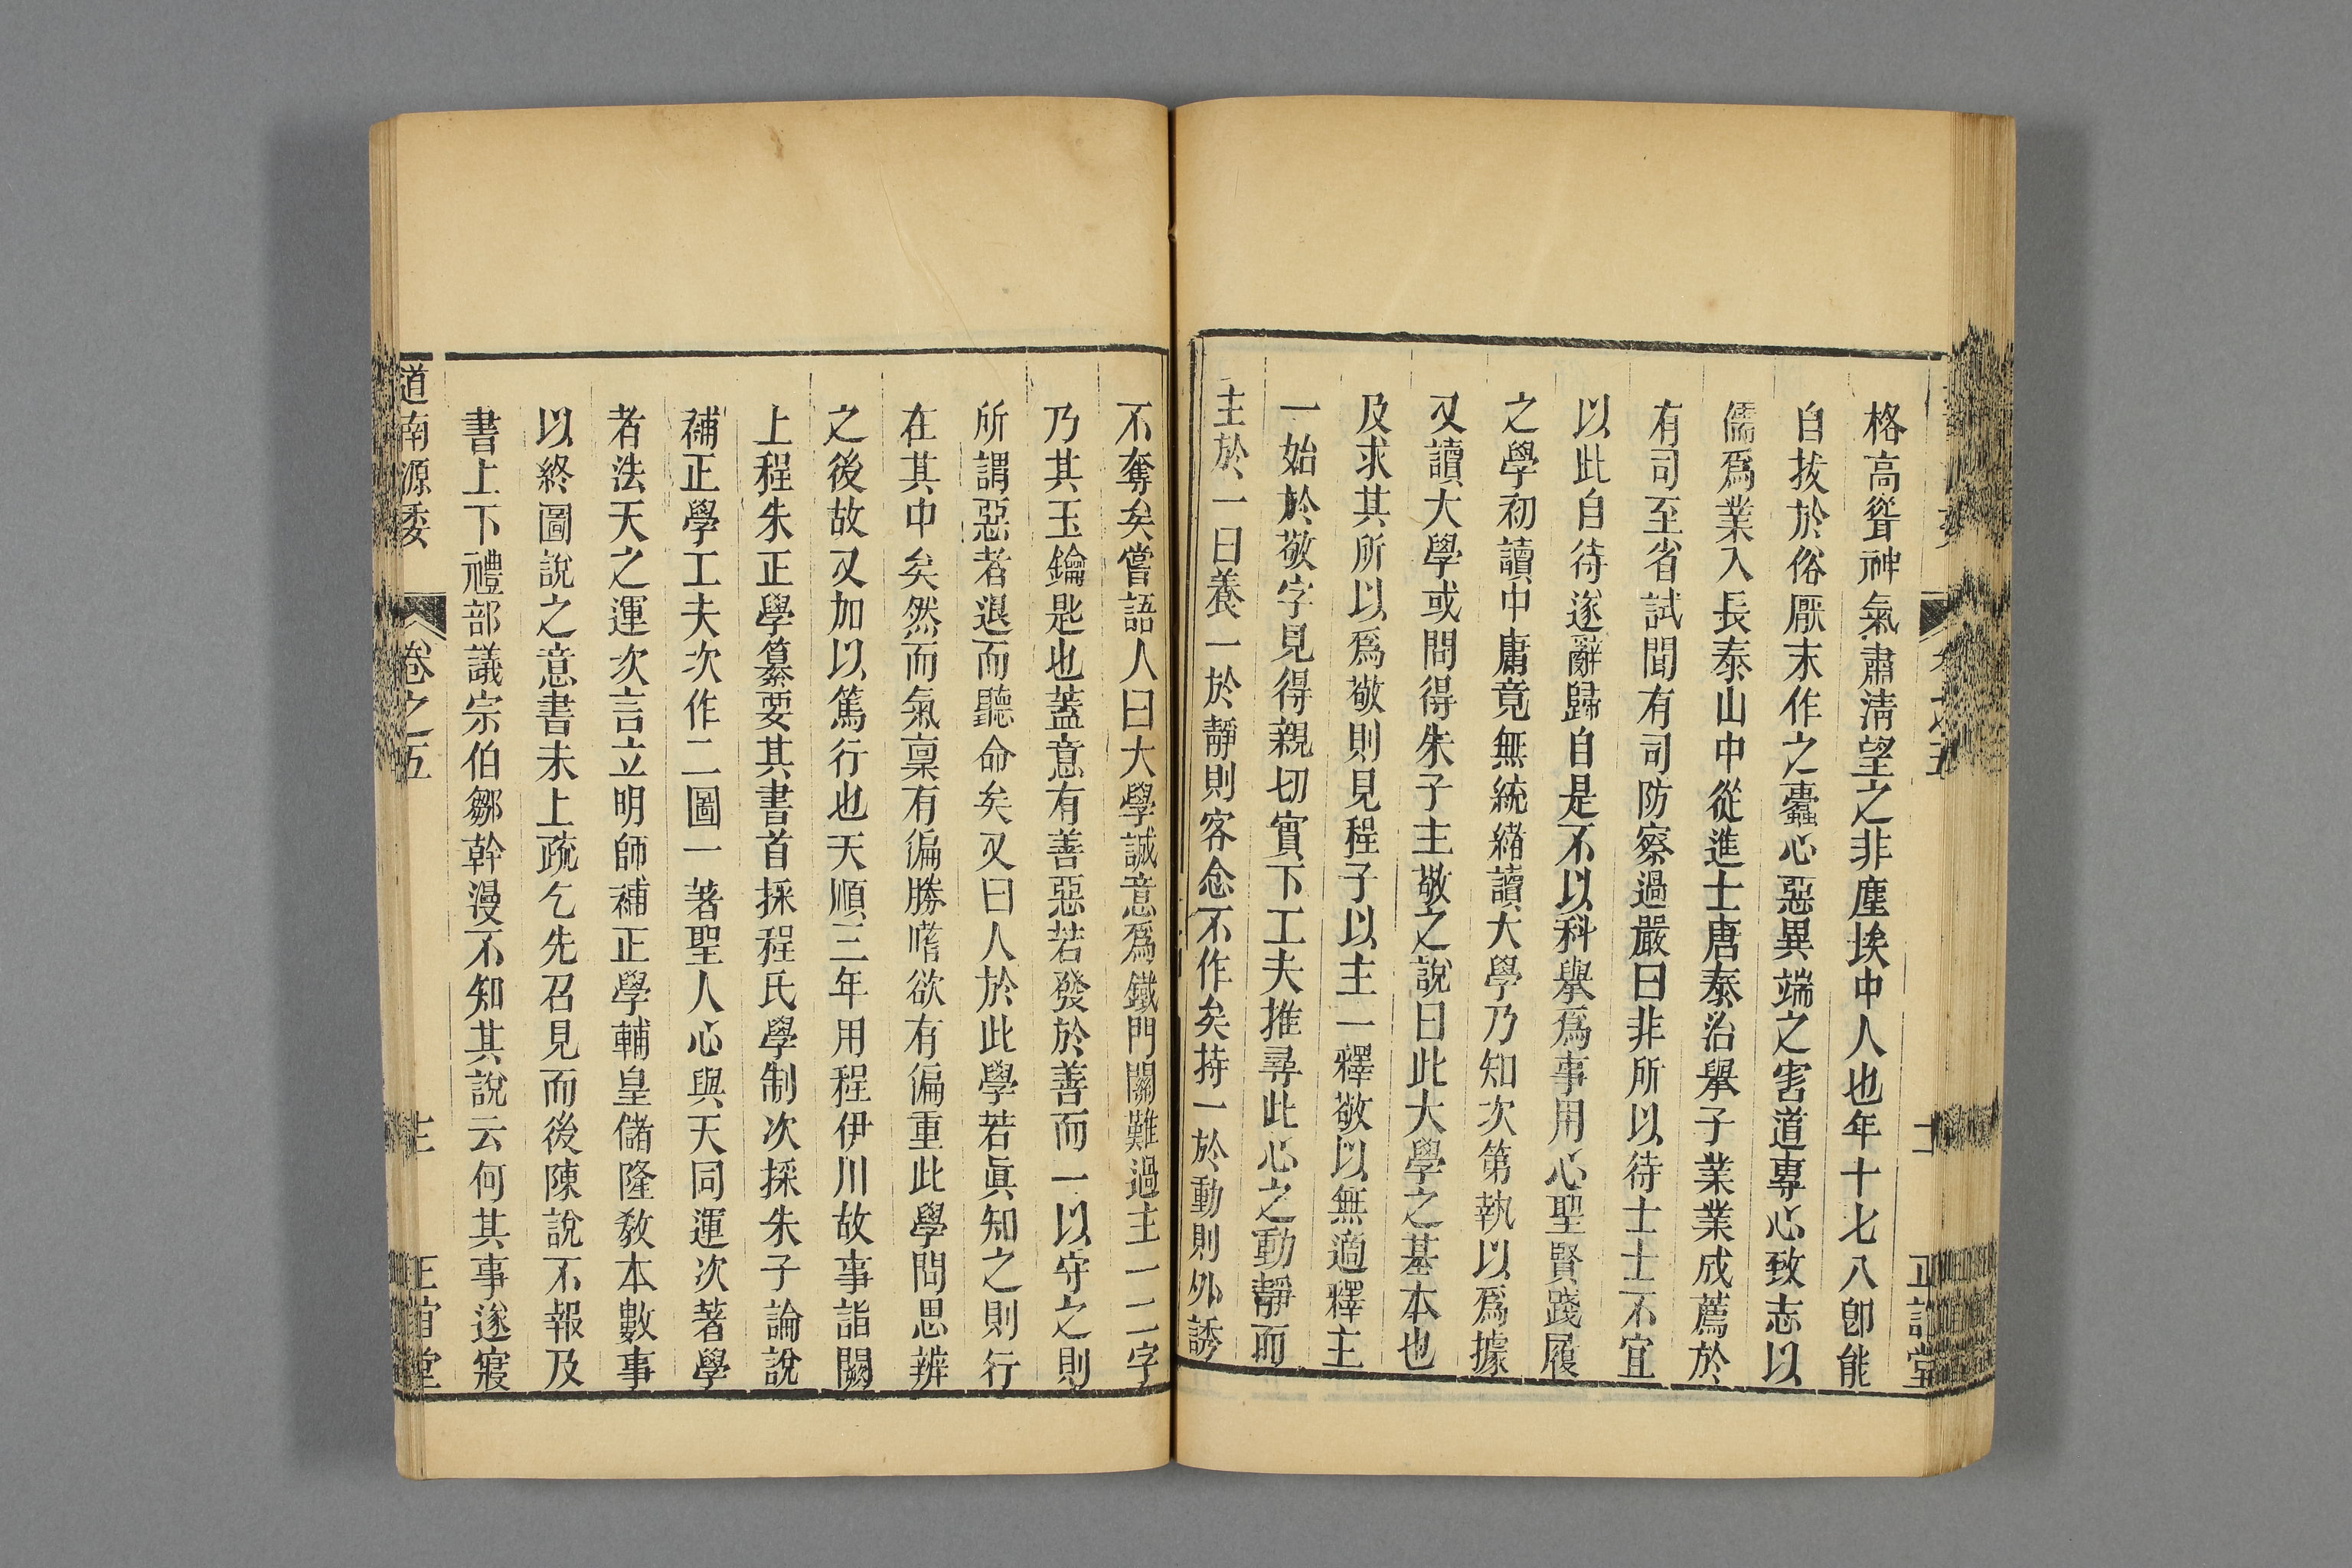 格高聳神氣肅淸望之非塵埃中人也年十七八卽能
自拔於俗厭末作之蠹心惡異端之害道專心致志以
儒爲業入長泰山中從進士唐泰治擧子業業成薦於
有司至省試聞有司防察過嚴曰非所以待士士不宜
以此自待遂辭歸自是不以科擧爲事用心聖賢踐履
之學初讀中庸竟無統緖讀大學乃知次第執以爲據
又讀大學或問得朱子主敬之說曰此大學之基本也
及求其所以爲敬則見程子以主一釋敬以無適釋主
一始於敬字見得親切實下工夫推尋此心之動靜而
主於一曰養一於靜則客念不作矣持一於動則外誘
不奪矣嘗語人曰大學誠意爲鐵門關難過主一二字
乃其玉鑰匙也蓋意有善惡若發於善而一以守之則
所謂惡者退而聽命矣又曰人於此學若眞知之則行
在其中矣然而氣稟有偏勝嗜欲有偏重此學問思辨
之後故又加以篤行也天順三年用程伊川故事詣闕
上程朱正學纂要其書首採程氏學制次採朱子論說
補正學工夫次作二圖一著聖人心與天同運次著學
者法天之運次言立明師補正學輔皇儲隆敎本數事
以終圖說之意書未上疏乞先召見而後陳說不報及
書上下禮部議宗伯鄒幹漫不知其說云何其事遂寢
道南源委 卷之五 正誼堂